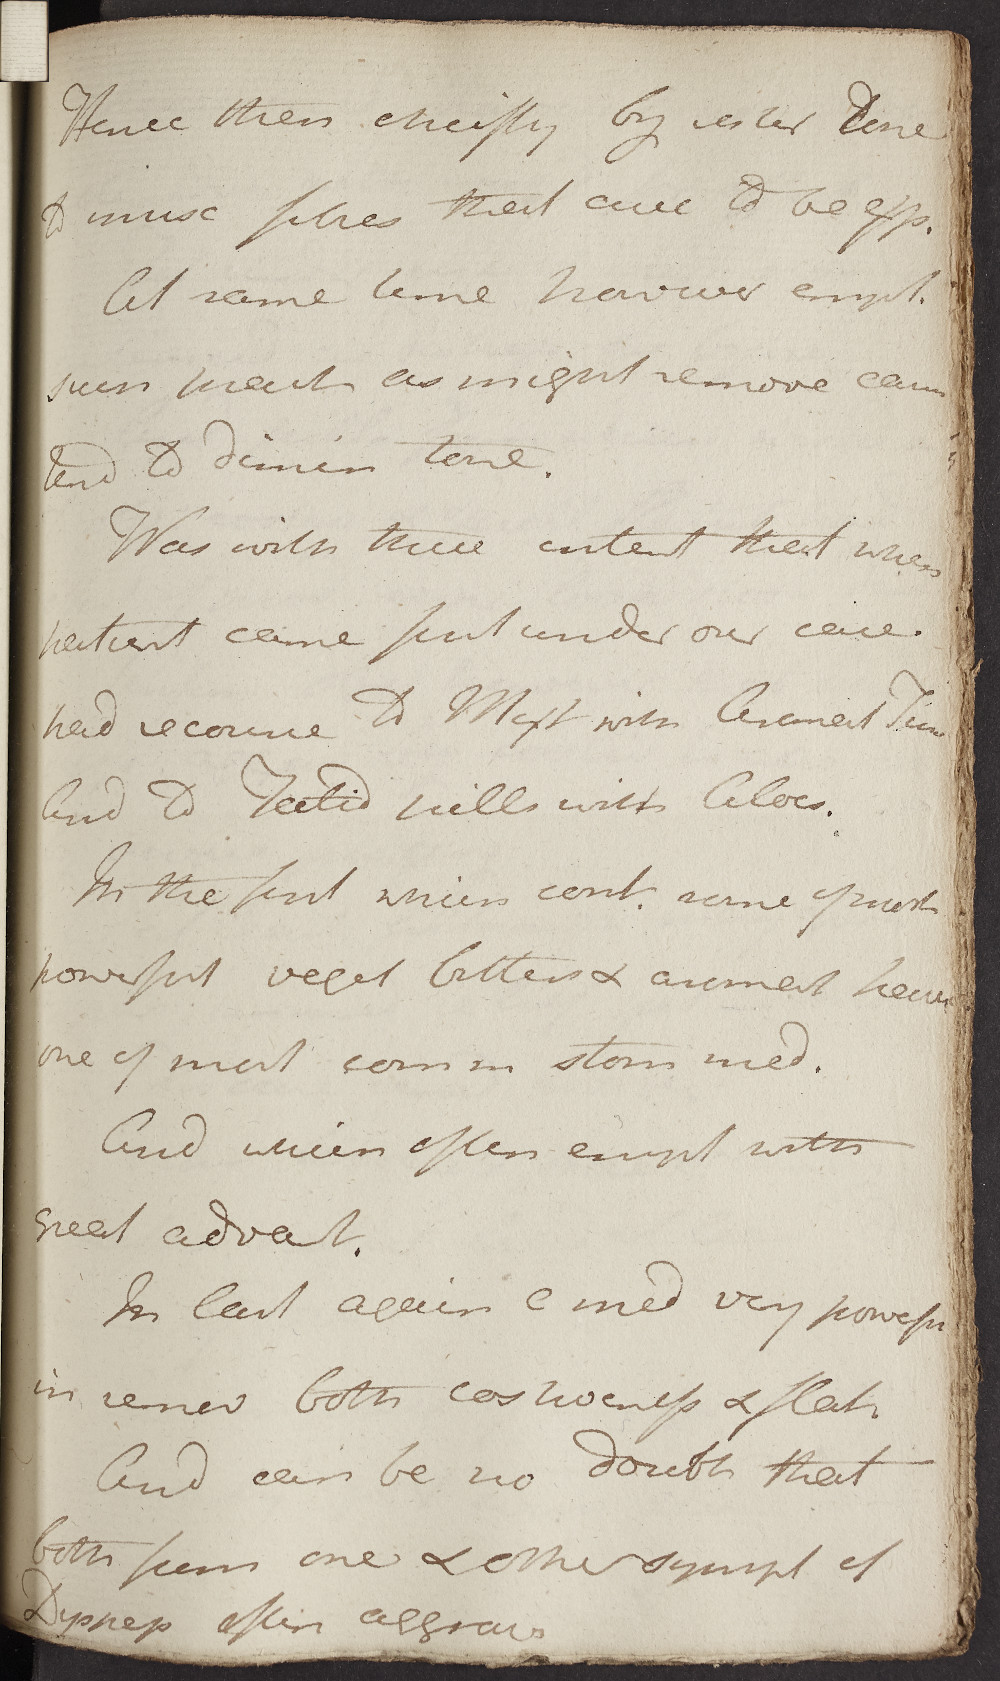 Hence then cheifly by rester tone
to musc fibres that cure to be exp.
At same time however empl.
such means as might remove caus
tend to dimin tone.
Was with these intent that when
patient came first under our care.
had recourse to Mixt with Aromat Tinc
And to Foetid pills with Aloes.
In the first which cont. some of most
powerfull veget bitters & aromat have
one of most comm stom med.
And which often empl with
great advant.
In last again a med very powerfu
in remov both costiveness & flat.
And can be no doubt that
both from one & other sympt of
Dyspeps often aggrav